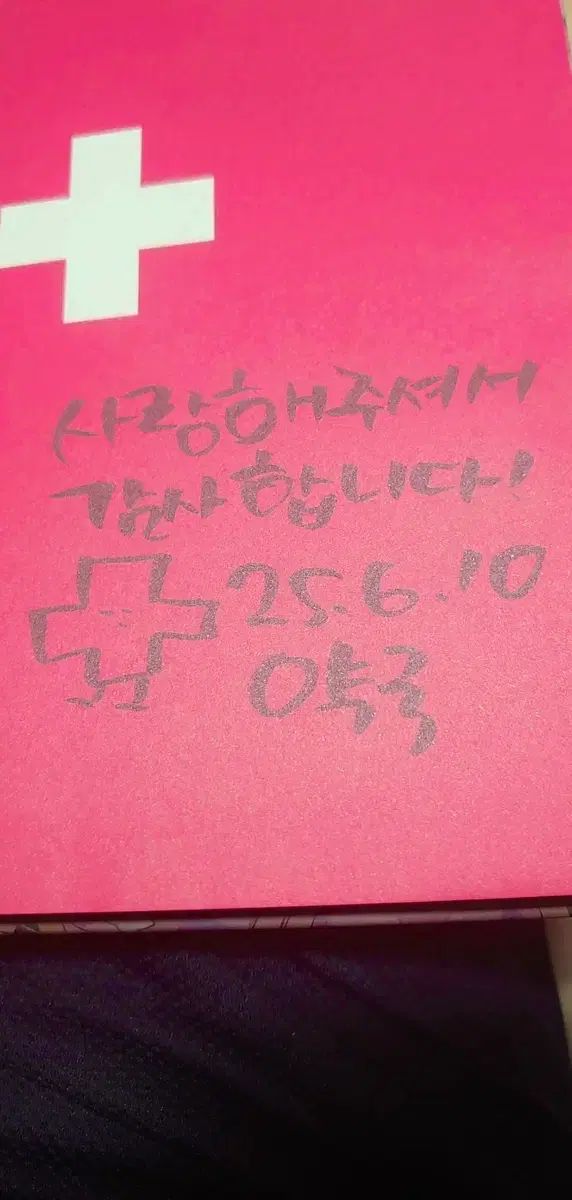 사랑해주셔서
감사합니다!
25.6.10
약국